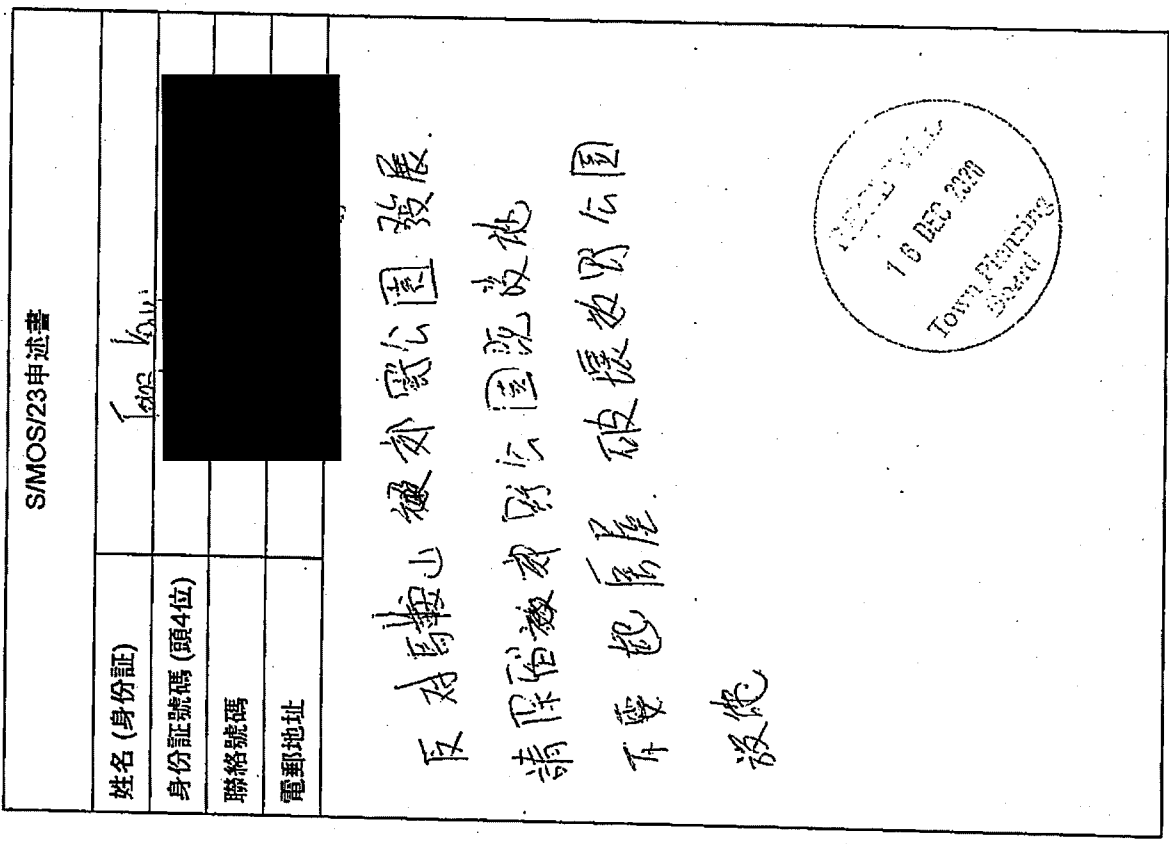 S/MOS/23申述書
姓名 (身份証)
身份証號碼 (頭4位)
聯絡號碼
電郵地址
反对馬鞍山 郊 公園 發展.
請保留 郊野公園既設施
不要起房屋 破壞 野公園
設施
16 DEC 2020
Town Planning
Board